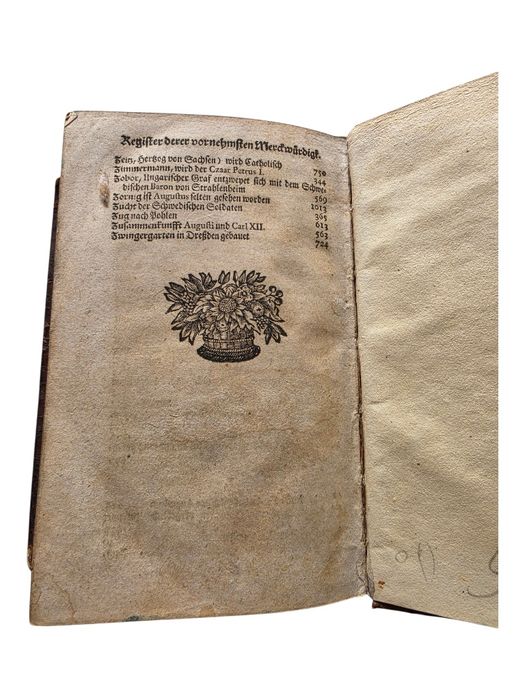 Register derer vornehmsten Merckwürdigk.
Zeitz, Hertzog von Sachsen) wird Catholisch 750
Zimmermann, wird der Czaar Petrus I. 344
Zobor, Ungarischer Graf entzweyet sich mit dem Schwe-
dischen Baron von Strahlenheim 569
Zornig ist Augustus selten gesehen worden 1013
Zucht der Schwedischen Soldaten 365
Zug nach Pohlen 613
Zusammenkunfft Augusti und Carl XII. 563
Zwingergarten in Dreßden gebauet 724